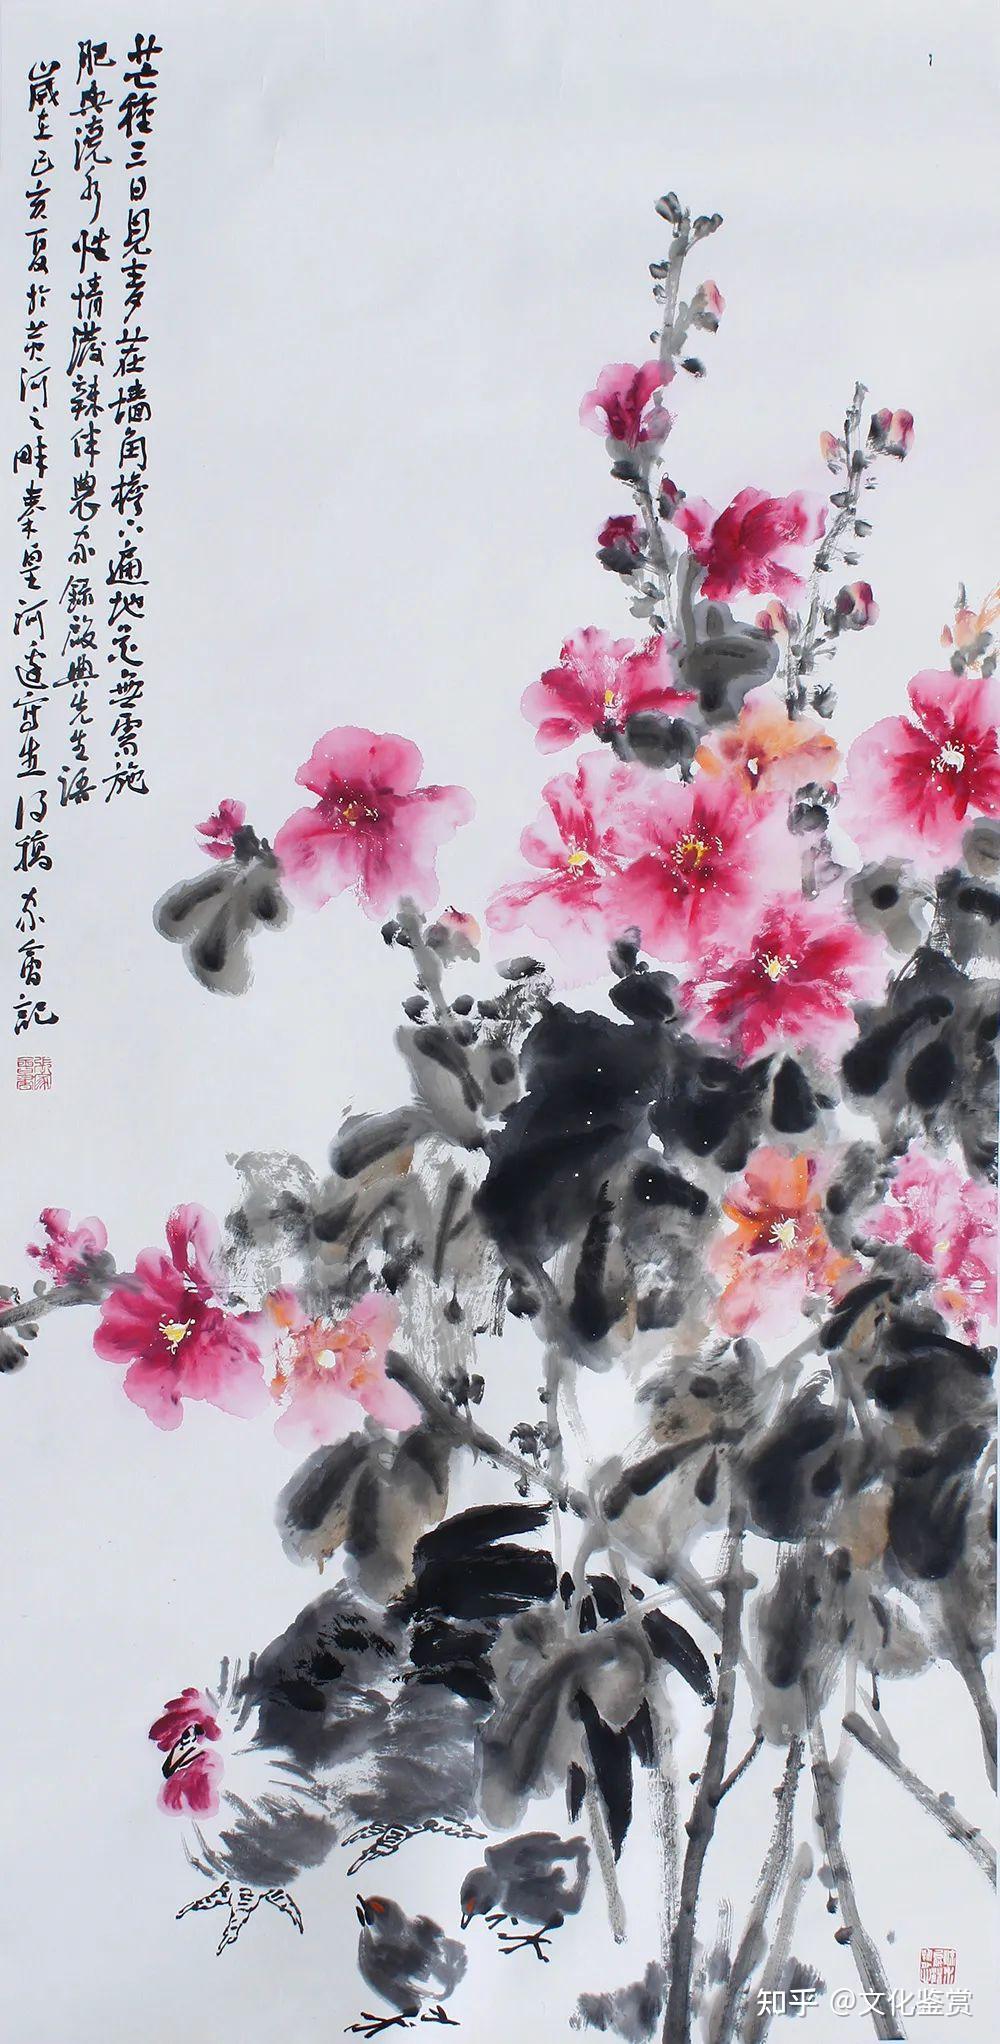 芒種三日見麦茬墙角檐下遍地花無需施
肥與澆水性情潑辣伴農家錄啟典先生語
歲在己亥夏於黄河之畔秦皇河邊寫生得稿家會記
知乎 @文化鉴赏